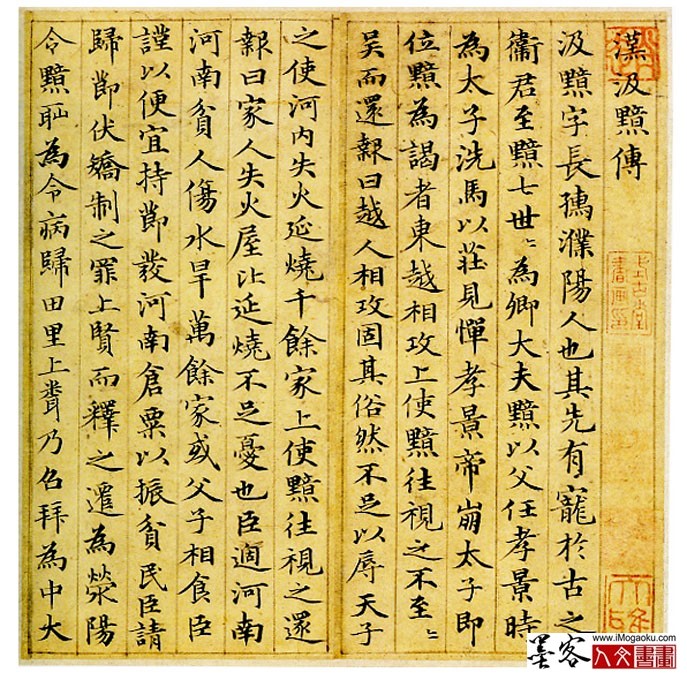 漢汲黯傳
汲黯字長孺濮陽人也其先有寵於古之
衞君至黯七世〻為卿大夫黯以父任孝景時
為太子洗馬以莊見憚孝景帝崩太子即
位黯為謁者東越相攻上使黯往視之不至〻
吴而還報曰越人相攻固其俗然不足以辱天子
之使河内失火延燒千餘家上使黯往視之還
報曰家人失火屋比延燒不足憂也臣適河南
河南貧人傷水旱萬餘家或父子相食臣
謹以便宜持節發河南倉粟以振貧民臣請
歸節伏矯制之罪上賢而釋之遷為滎陽
令黯恥為令病歸田里上聞乃召拜為中大
墨客
www.iMogaoku.com
人文書畫